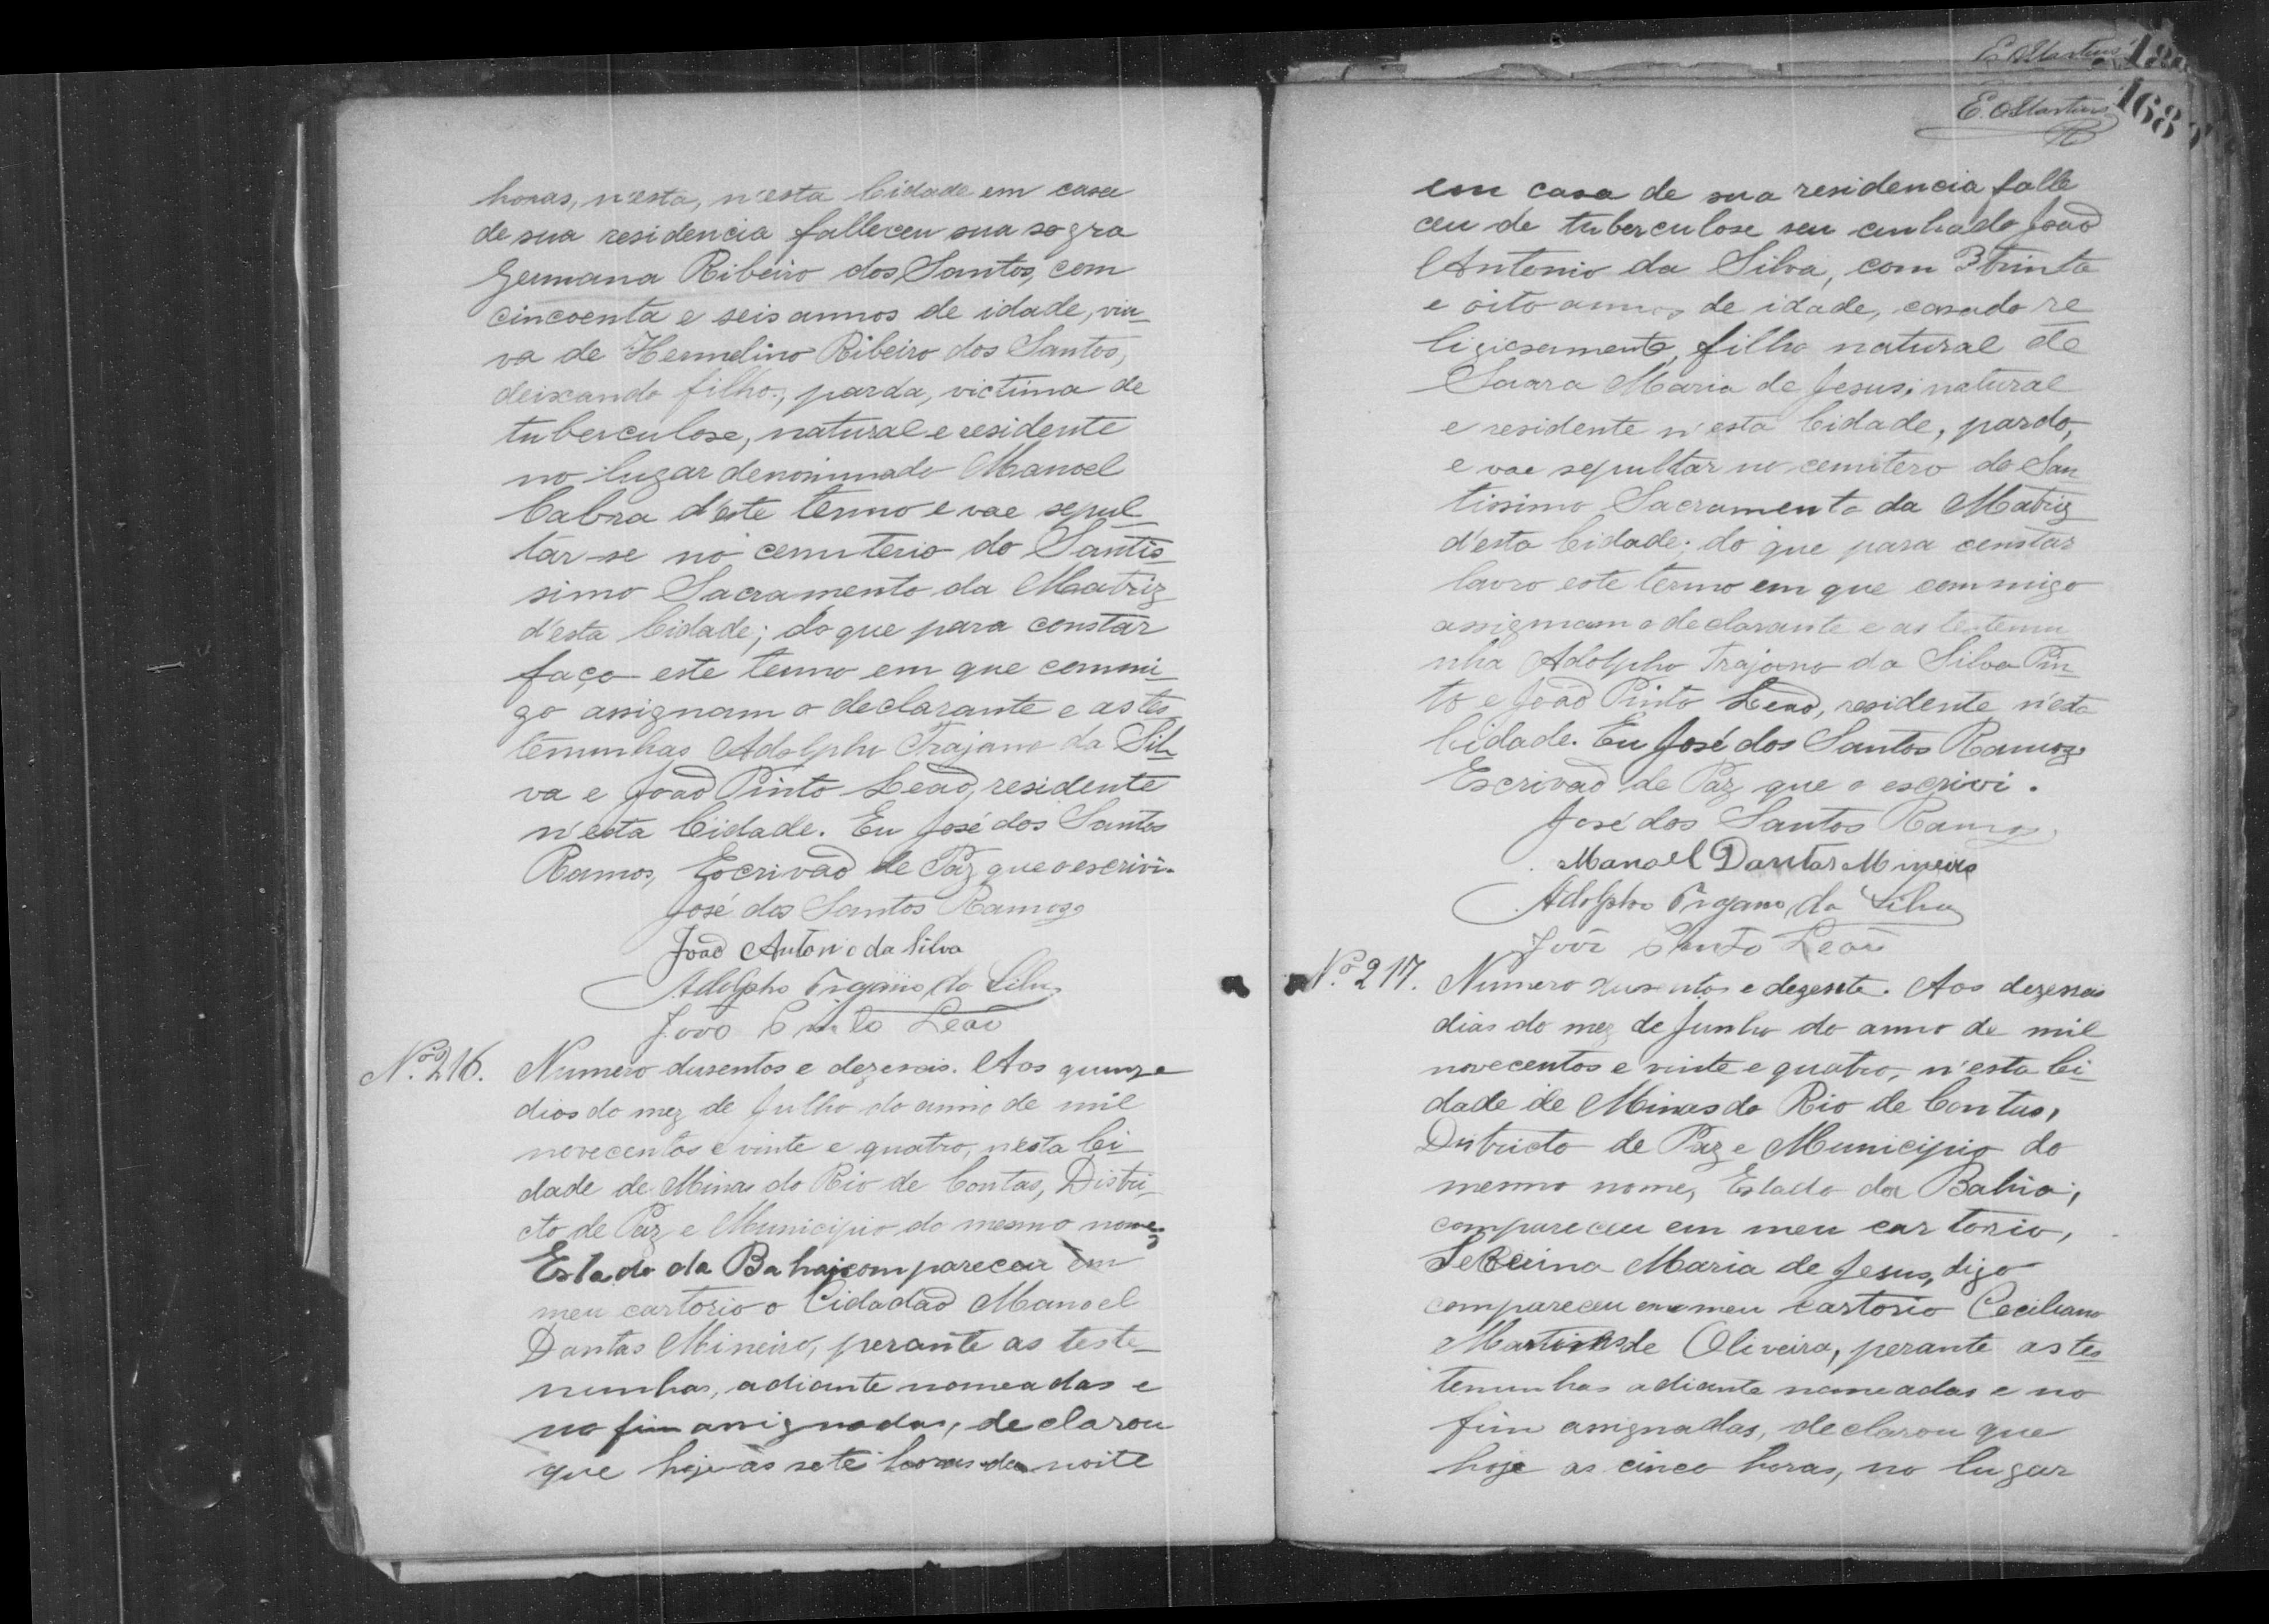 horas, n'esta, n'esta Cidade em casa
de sua residencia falleceu sua sogra
Germana Ribeiro dos Santos, com
cincoenta e seis annos de idade, viu-
va de Hermelino Ribeiro dos Santos,
deixando filho, parda, victima de
tuberculose, natural e residente
no lugar denominado Manoel
Cabra d'este termo e vae sepul-
tar-se no cemiterio do Santis-
simo Sacramento da Matriz
d'esta Cidade; do que para constar
faço este termo em que commi-
go assignam o declarante e as tes-
temunhas Adolpho Trajano da Sil-
va e João Pinto Leão, residente
n'esta Cidade. Eu José dos Santos
Ramos, Escrivão de Paz que o escrivi.
José dos Santos Ramos
João Antonio da Silva
Adolpho Trgano da Silva
João Pinto Leão
Nº. 216. Numero dusentos e dezeseis. Aos quinze
dias do mez de Julho do anno de mil
novecentos e vinte e quatro, n'esta Ci-
dade de Minas do Rio de Contas, Distri-
cto de Paz e Municipio do mesmo nome,
Estado da Bahai compareceu em
meu cartorio o Cidadão Manoel
Dantas Mineiro, perante as teste-
nunhas, adiante nomeadas e
no fim assignadas, declarou
que hoje as sete horas da noite
E. Martins
E. Martins 168
em casa de sua residencia falle
ceu de tuberculose seu cunhado João
Antonio da Silva, com trinta
e oito annos de idade, casado re
ligiosamente, filho natural de
Maria de Jesus, natural
e residente n'esta Cidade, pardo,
e vae sepultar no cemitero do San
tissimo Sacramento da Matriz
d'esta Cidade; do que para constar
lavro este termo em que commigo
assignam o declarante e as testemu
nha Adolpho Trajano da Silva Pin-
to e João Pinto Leão, residente n'esta
Cidade. Eu José dos Santos Ramos
Escrivão de Paz que o escrivi.
José dos Santos Ramos
Manoel Dantas Mineiro
Adolpho Trgano da Silva
João Pinto Leão
Nº. 217. Numero dusentos e dezesete. Aos dezesseis
dias do mez de Junho do anno de mil
novecentos e vinte e quatro, n'esta Ci-
dade de Minas do Rio de Contas,
Districto de Paz e Municipio do
mesmo nome, Estado da Bahia,
compareceu em meu cartorio,
Maria de Jesus, digo
compareceu em meu cartorio Ceciliano
Martins de Oliveira, perante as tes
temunhas adiante nomeadas e no
fim assignadas, declarou que
hoje as cinco horas, no lugar